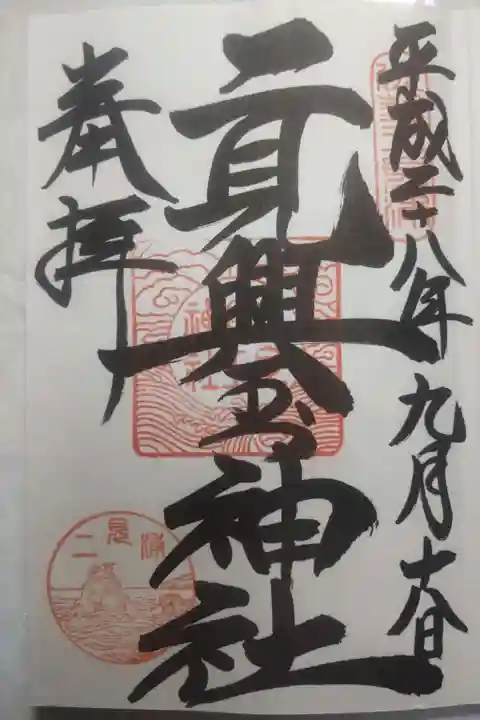 平成二十八年九月十八日
二見興玉神社
奉拝
二見浦
神社